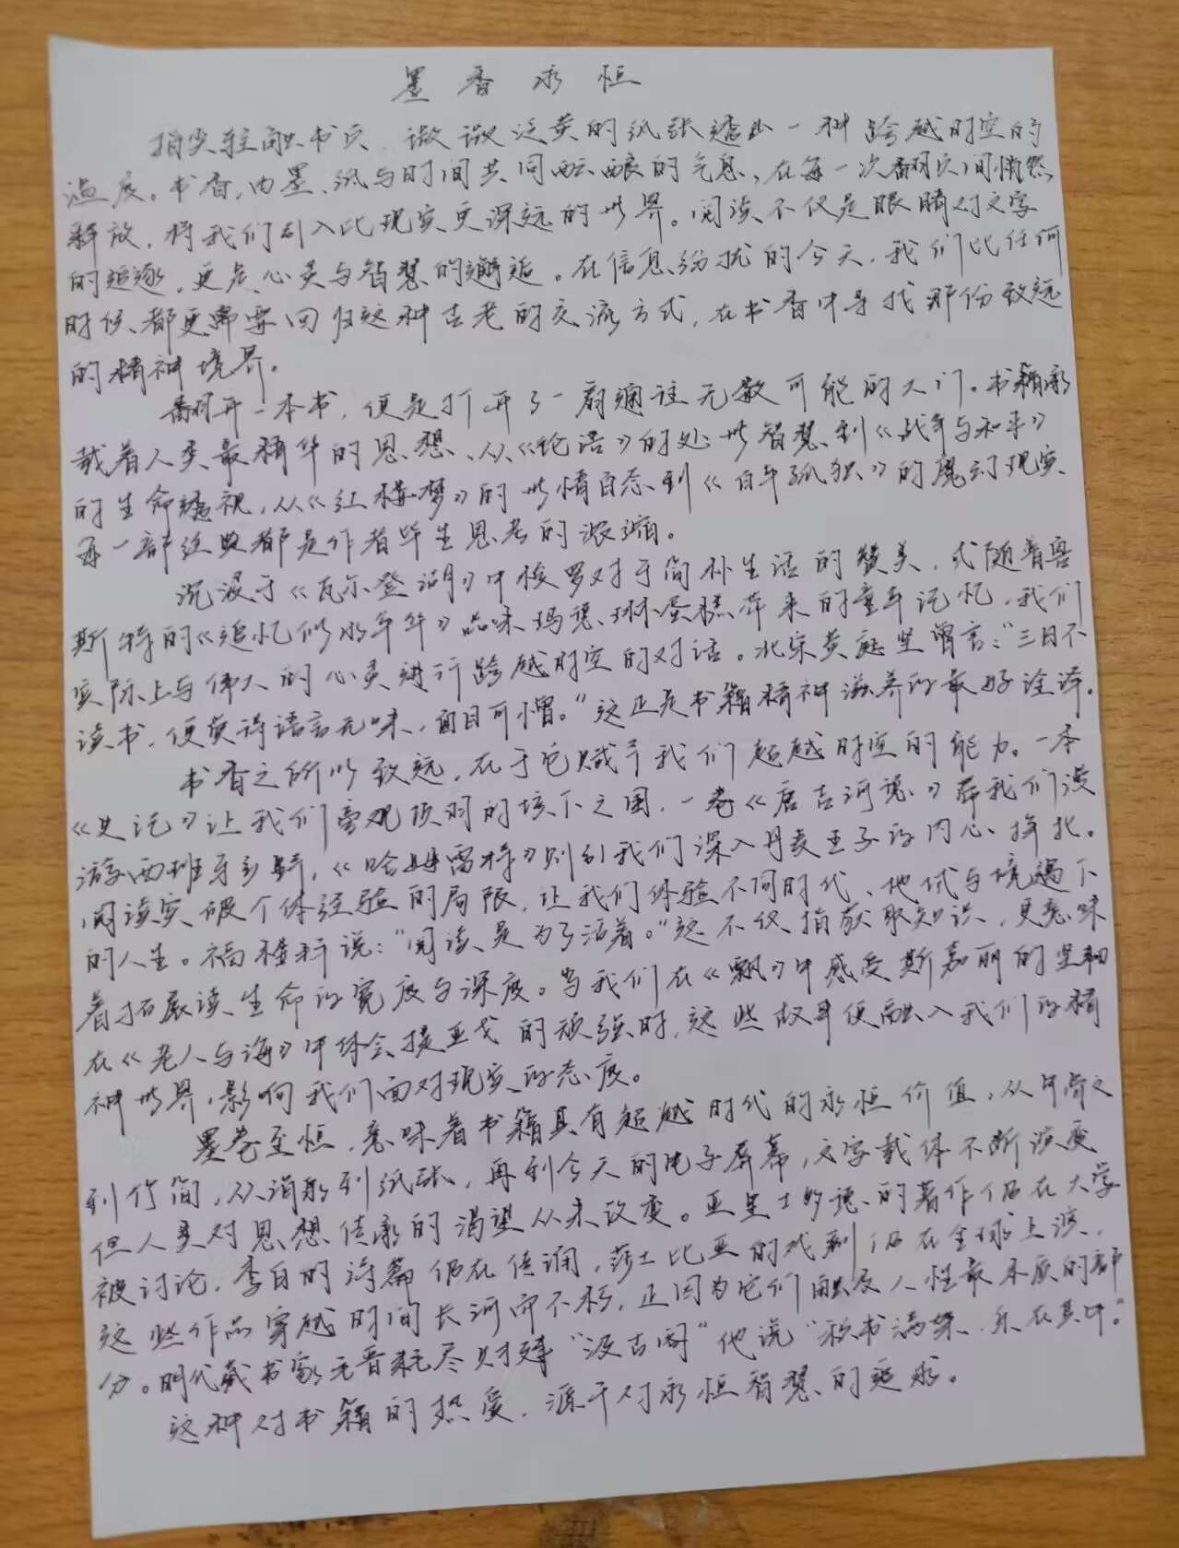 墨香永恒
指尖轻触书页，微微泛黄的纸张透出一种跨越时空的
温度。书香，由墨、纸与时间共同酝酿的气息，在每一次翻页间悄然
释放，将我们引入比现实更深远的世界。阅读不仅是眼睛对文字
的追逐，更是心灵与智慧的邂逅。在信息纷扰的今天，我们比任何
时候都更需要回归这种古老的交流方式，在书香中寻找那份致远
的精神境界。
翻开一本书，便是打开了一扇通往无数可能的大门。书籍承
载着人类最精华的思想、从《论语》的处世智慧到《战争与和平》
的生命透视，从《红楼梦》的世情百态到《百年孤独》的魔幻现实
每一部经典都是作者毕生思考的浓缩。
沉浸于《瓦尔登湖》中梭罗对于简朴生活的赞美，或随普鲁
斯特的《追忆似水年华》品味玛德琳小蛋糕带来的童年记忆，我们
实际上与伟大的心灵进行跨越时空的对话。北宋黄庭坚曾言：“三日不
读书，便觉语言无味，面目可憎。”这正是书籍精神滋养的最好诠译。
书香之所以致远，在于它赋予我们超越时空的能力。一本
《史记》让我们旁观项羽的垓下之围，一卷《唐吉诃德》带我们漫
游西班牙乡野，《哈姆雷特》则引我们深入丹麦王子的内心挣扎。
阅读突破个体经验的局限，让我们体验不同时代、地域与境遇下
的人生。福楼拜说：“阅读是为了活着。”这不仅指获取知识，更意味
着拓展读生命的宽度与深度。当我们在《飘》中感受斯嘉丽的坚韧
在《老人与海》中体会提亚戈的顽强时，这些故事便融入我们的精
神世界，影响我们面对现实的态度。
墨卷至恒，意味着书籍具有超越时代的永恒价值，从甲骨文
到竹简，从绢帛到纸张，再到今天的电子屏幕，文字载体不断演变
但人类对思想传承的渴望从未改变。亚里士多德的著作仍在大学
被讨论，李白的诗篇仍在传诵，莎士比亚的戏剧仍在全球上演，
这些作品穿越时间长河而不朽，正因为它们触及人性最本质的部
分。明代藏书家毛晋耗尽财建“汲古阁”他说“积书满架，乐在其中。”
这种对书籍的热爱，源于对永恒智慧的追求。